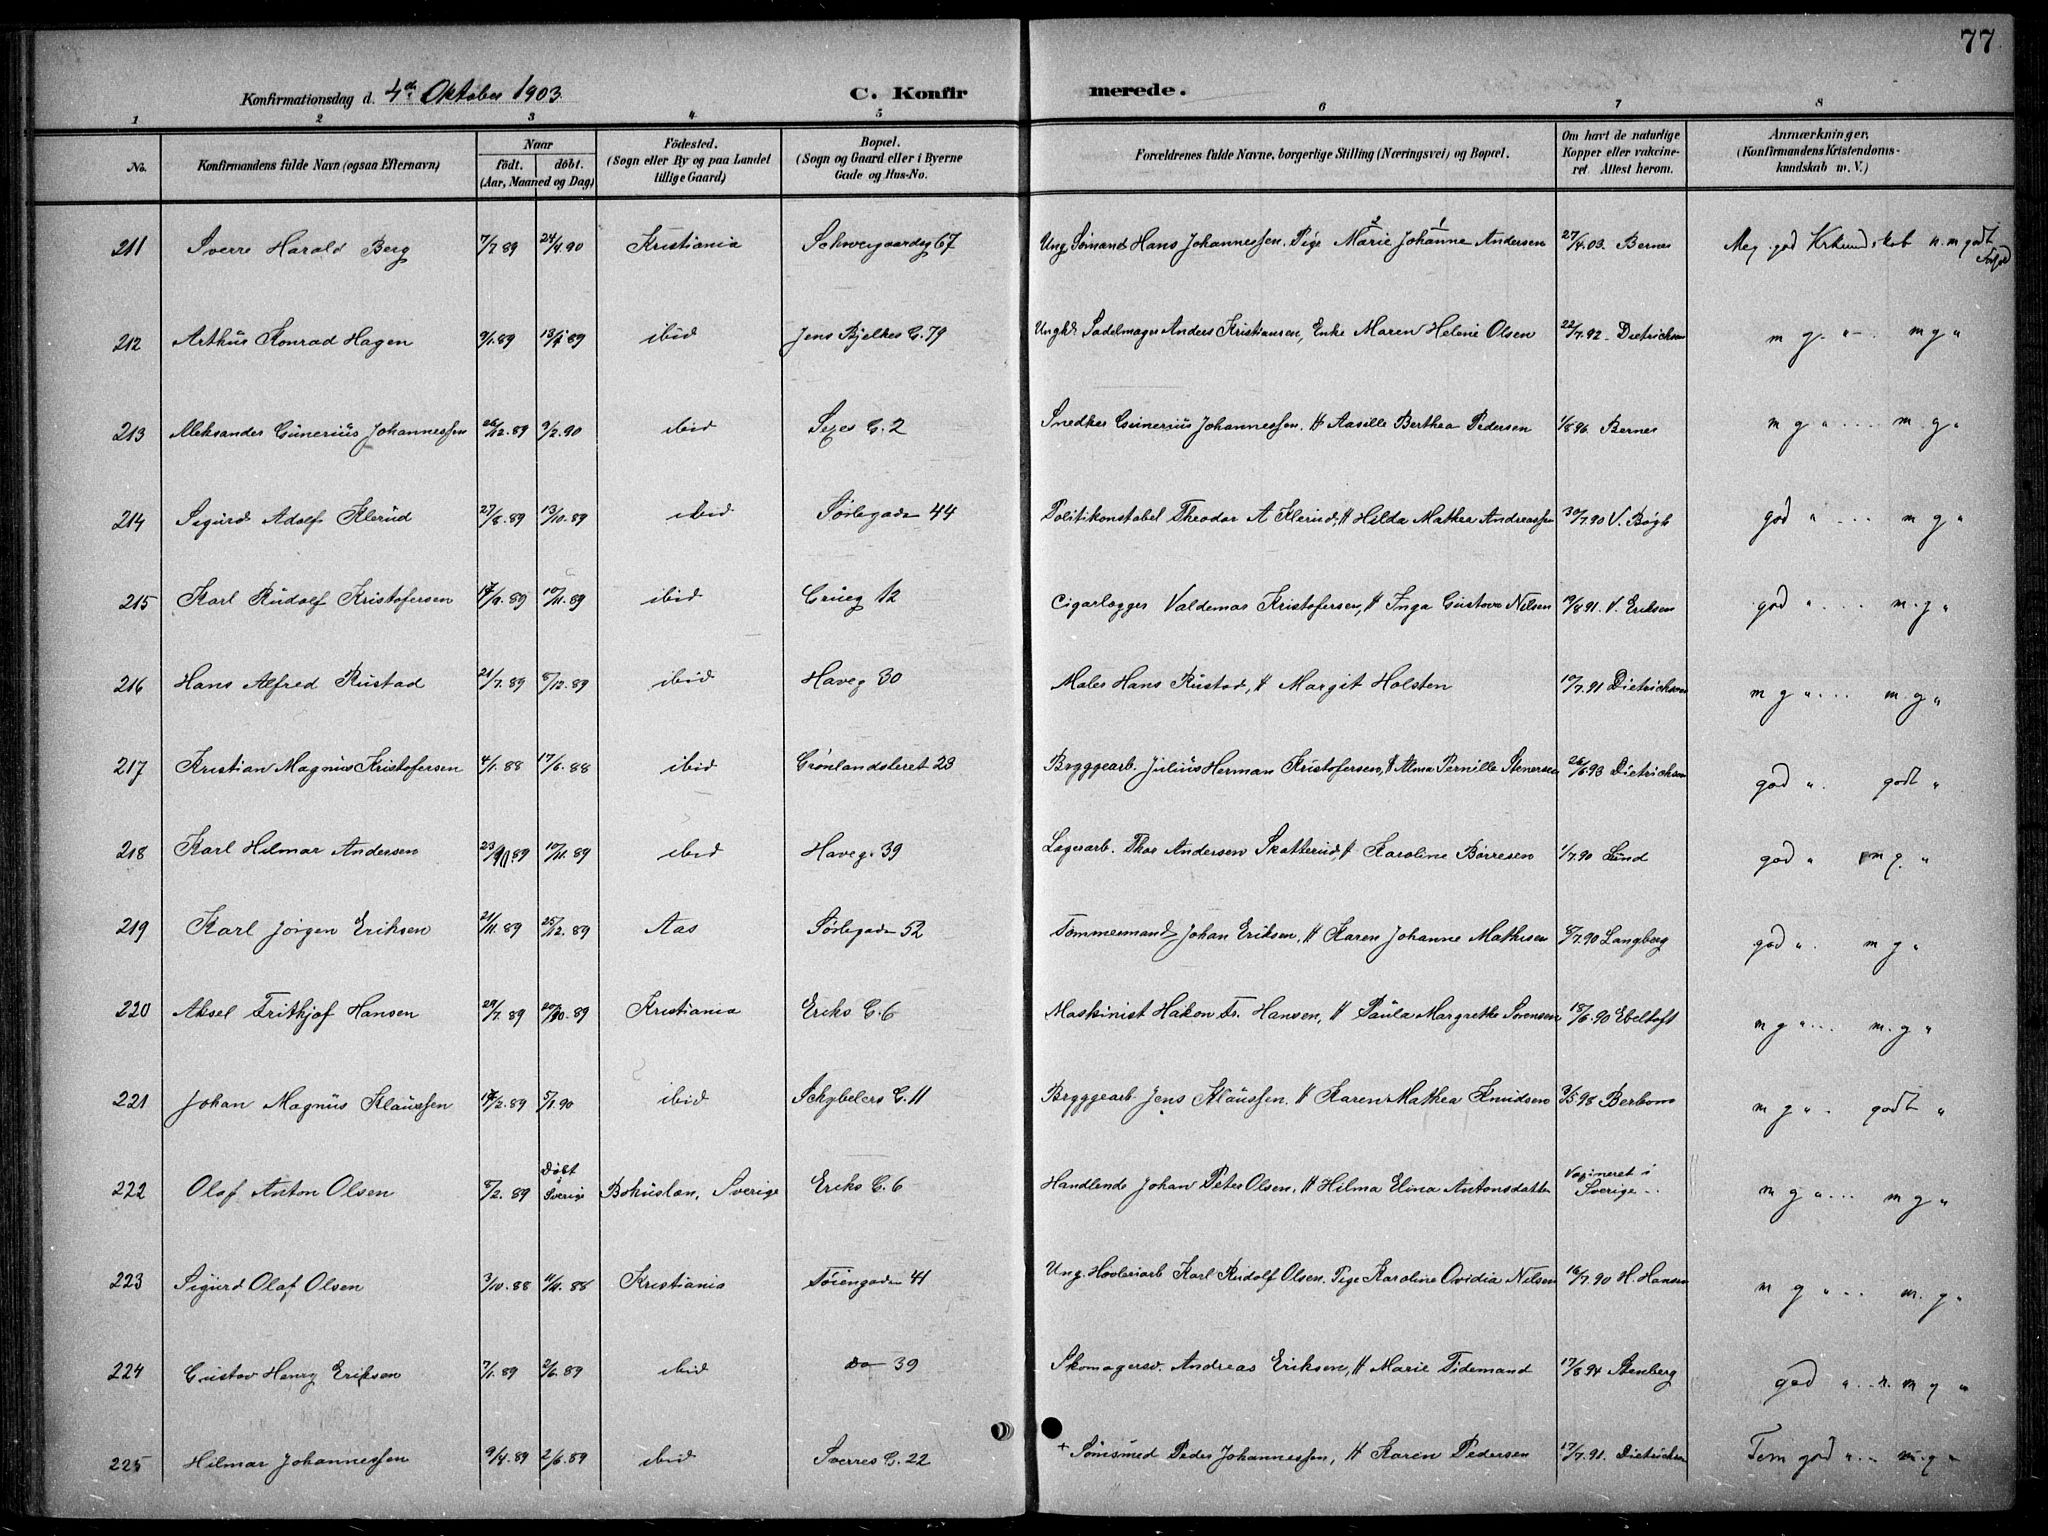 77
Konfirmationsdag d. 4de Oktober 1903. C. Konfirmerede.
1 2 3 4 5 6 7 8
No. Konfirmandens fulde Navn (ogsaa Efternavn) Naar födt. döbt. (Aar, Maaned og Dag) Födested. (Sogn eller By og paa Landet tillige Gaard) Bopæl. (Sogn og Gaard eller i Byerne Gade og Hus-No. Forældrenes fulde Navne, borgerlige Stilling (Næringsvei) og Bopæl. Om havt de naturlige Kopper eller vakcineret. Attest herom. Anmærkninger. (Konfirmandens Kristendomskundskab m. V.)
211 Sverre Harald Berg 7/7 89 24/4 90 Kristiania Schweigaardsg 67 Ung. Sömand Hans Johannessen. Pige Marie Johanne Andersen 27/4.03 Berner Meg. god Krkundskab n. m godt Forhold
212 Arthur Konrad Hagen 9/1.89 13/1 89 ibid Jens Bjelkes G. 79 Ungk. Sadelmager Anders Kristiansen, Enke Maren Helene Olsen 22/7.92 Dietrichson m g. " m g "
213 Aleksander Gunerius Johannessen 26/12.89 9/2.90 ibid Sexes G. 2 Snedker Gunerius Johannessen. H Aasille Berthea Pedersen 1/8 96 Berner m g " ... m. g "
214 Sigurd Adolf Klerud 27/8.89 13/10.89 ibid Sörlegaden 44 Politikonstabel Theodor A Klerud, H Hilda Mathea Andreassen 30/7.90 V. Bögh god " ... m g "
215 Karl Rudolf Kristofersen 17/9.89 10/11.89 ibid Grüneg 12 Cigarlægger Valdemar Kristofersen, H Inga Gustava Nilsen 19/8 91. V. Eriksen god " ... m. g "
216 Hans Alfred Rustad 21/7.89 8/12.89 ibid Haveg 30 Maler Hans Rustad, H Margit Holsten 10/7.91 Dietrichson m g " ... m. g "
217 Kristian Magnus Kristofersen 4/1.88 17/6.88 ibid Grönlandsleret 23 Bryggearb. Julius Herman Kristofersen, H Alma Pernille Stenersen 26/6 93 Dietrichson god " . godt "
218 Karl Hilmar Andersen 23/10 89 10/11.89 ibid Haveg. 39 Lagerarb. Thor Andersen Skatterud, H Karoline Börresen 1/7.90 Lund god " m g. "
219 Karl Jörgen Eriksen 21/11.89 25/12.89 Aas Sörlegaden 52 Tömmermand Johan Eriksen, H Karen Johanne Mathisen 8/7.90 Langberg god " . m g "
220 Aksel Frithjof Hansen 29/7.89 20/10.89 Kristiania Eriks G. 6 Maskinist Håkon Fr. Hansen, H Paula Margrethe Sörensen 18/6.90 Ebeltoft m g " ... m. g "
221 Johan Magnus Klaussen 14/2.89 5/1.90 ibid Schybelers G. 11 Bryggearb Jens Klaussen. H Karen Mathea Knudsen 3/5 98 Berbom m g " . godt "
222 Olaf Anton Olsen 8/2.89 Döbt i Sverige Bohuslän, Sverige Eriks G. 6 Handlende Johan Peter Olsen, H Hilma Elina Antonsdatter Vaxineret i Sverige .. m g " ... m g "
223 Sigurd Olaf Olsen 3/10.88 11/11.88 Kristiania Töiengaden 41 Ung. Hövleriarb Karl Rudolf Olsen. Pige Karoline Ovidia Nilsen 16/7.90 H. Hansen m g " ... m. g "
224 Gustav Henry Eriksen 7/1.89 2/6.89 ibid do 39 Skomagersv. Andreas Eriksen, H Marie Tidemand 17/8 94 Stenberg god " .. n. m g "
225 Hilmar Johannessen 9/4.89 2/6.89 ibid Sverres G. 22 + Sömsmed Peder Johannessen, H Karen Pedersen 17/7.91. Dietrichson Tem god " ... m. g "